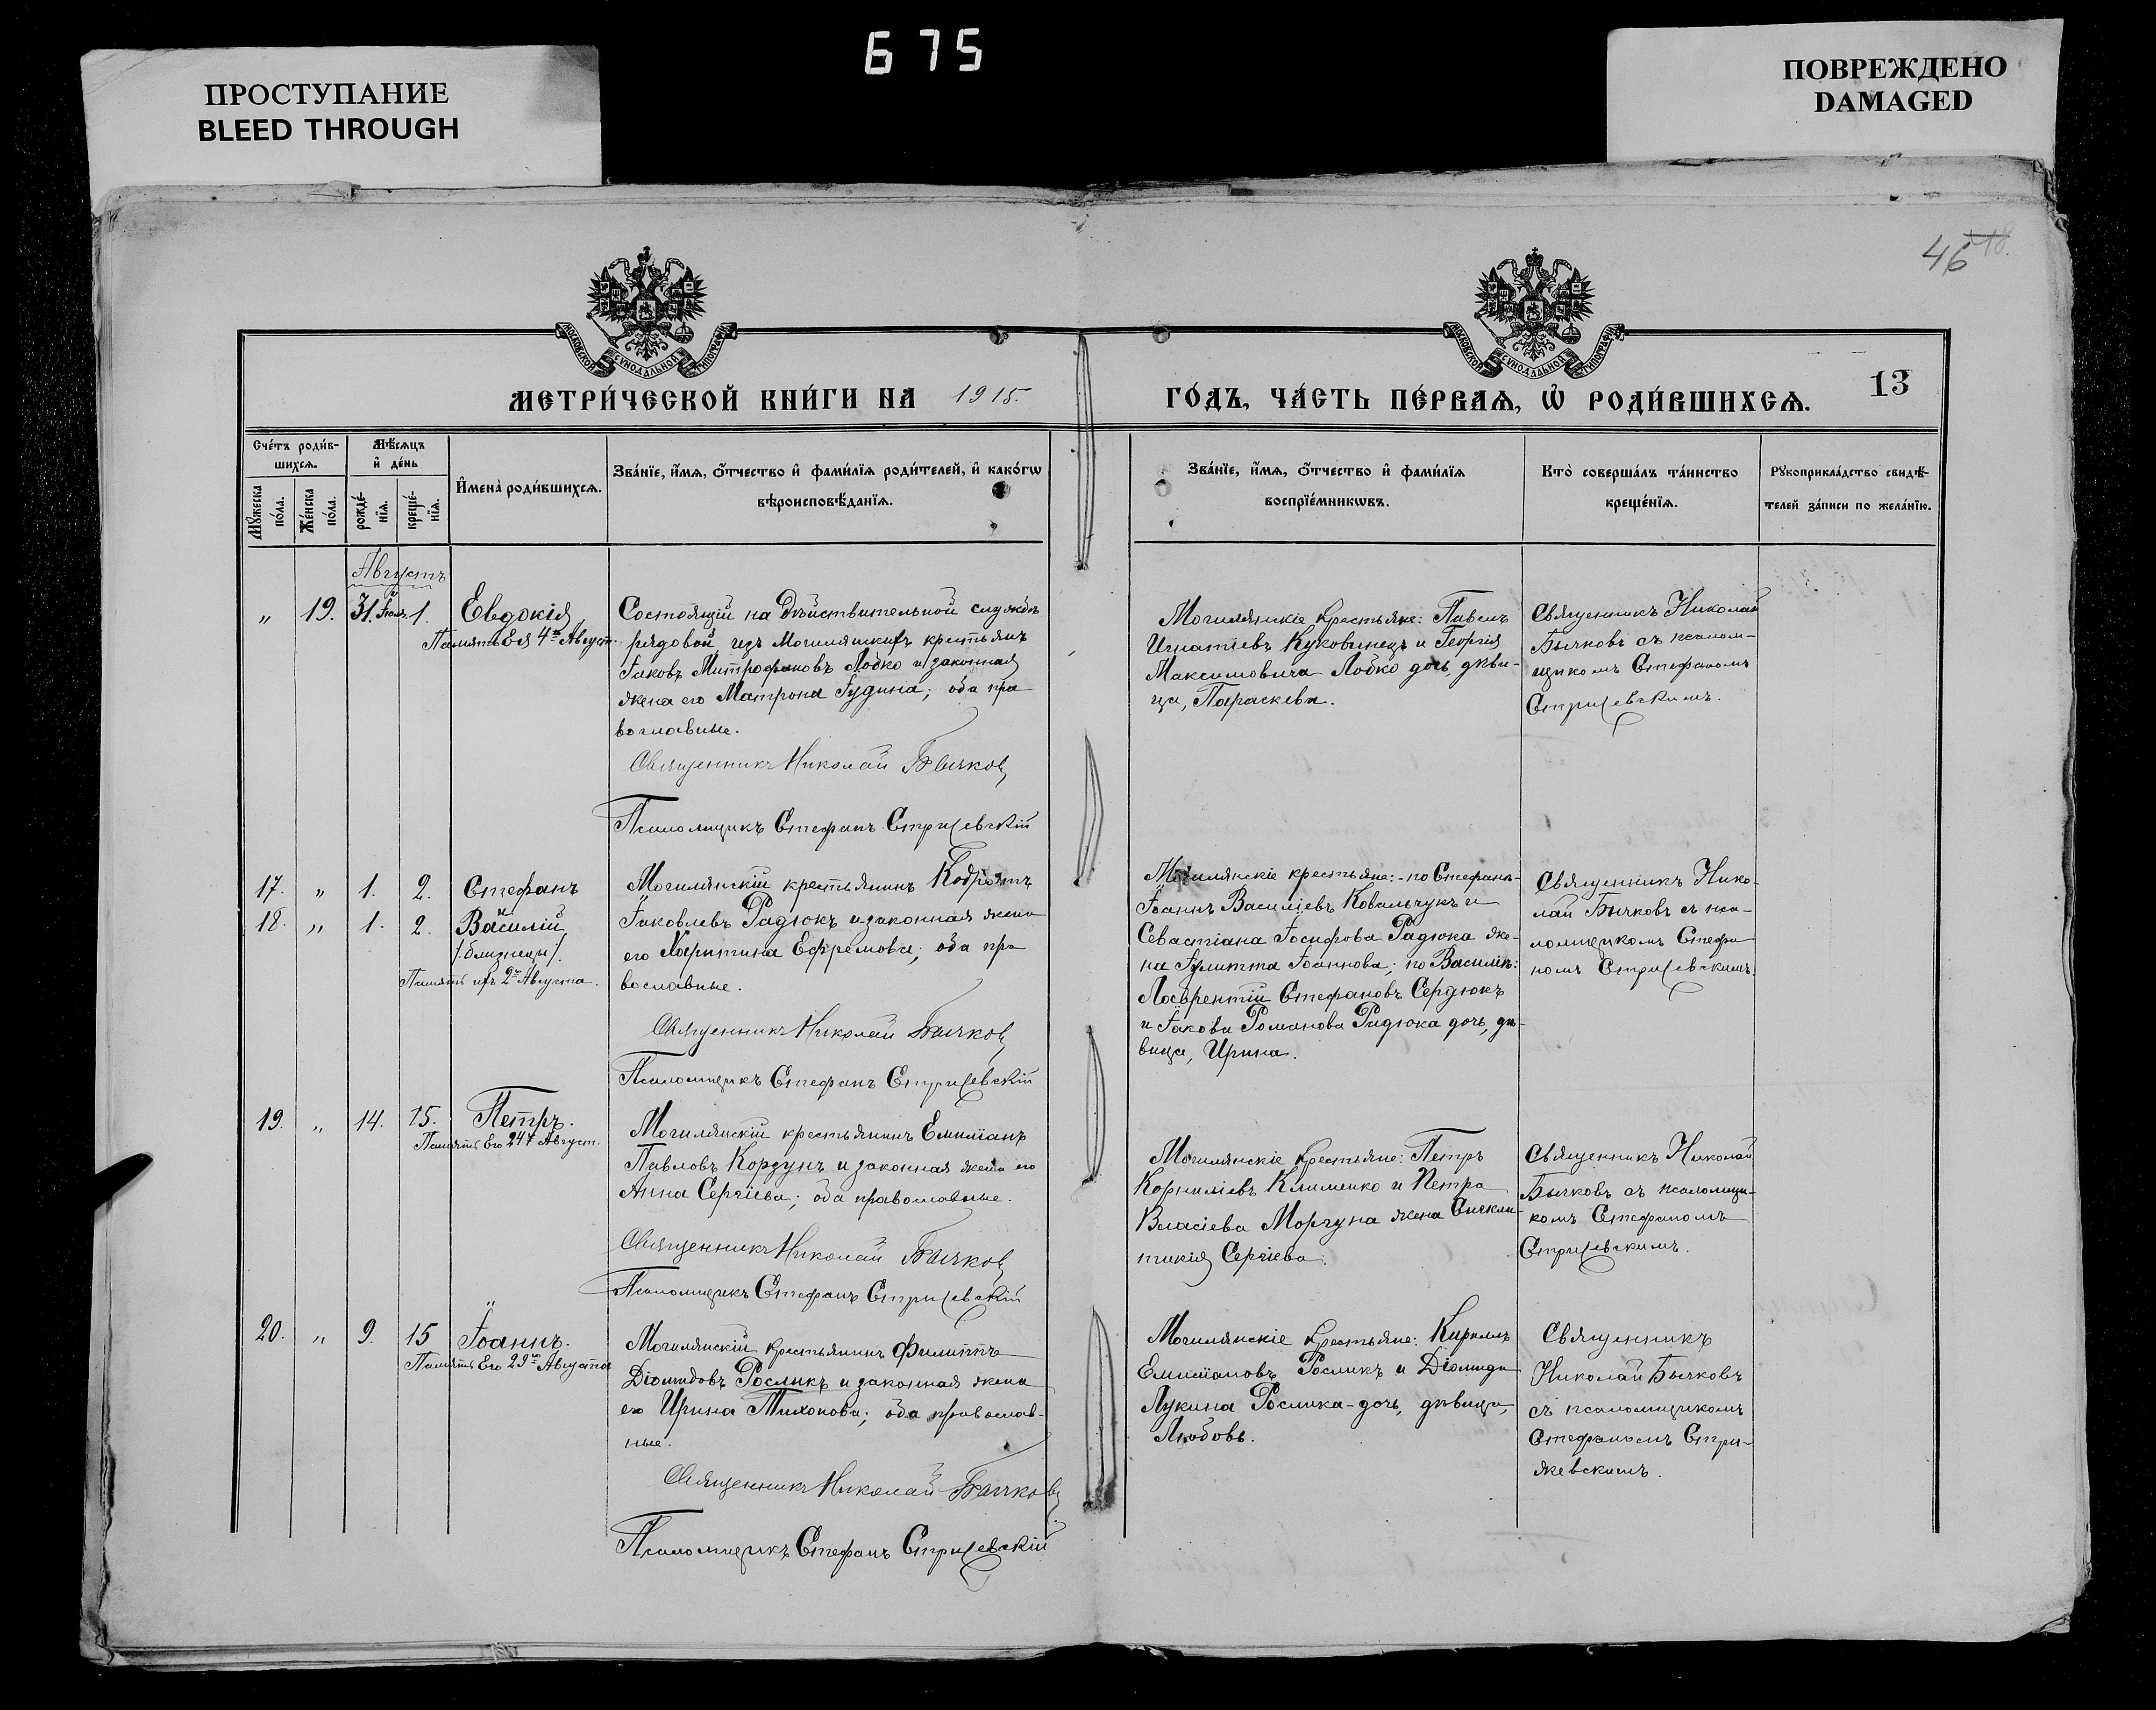 675
ПРОСТУПАНИЕ
BLEED THROUGH
ПОВРЕЖДЕНО
DAMAGED
46 18.
МОСКОВСКОЙ СѴНОДАЛЬНОЙ ТИПОГРАФІИ
МОСКОВСКОЙ СѴНОДАЛЬНОЙ ТИПОГРАФІИ
МЕТРИ́ЧЕСКОЙ КНИ́ГИ НА 1915.
ГО́ДЪ, ЧА́СТЬ ПЕ́РВАѦ, Ѡ҆ РОДИ́ВШИХСѦ.
13
Сче́тъ роди́в-
шихсѧ.
Мꙋ́жеска
по́ла.
Же́нска
по́ла.
Мѣ́сѧцъ
и҆ де́нь
рожде́-
нїѧ.
креще́-
нїѧ.
И҆мена̀ роди́вшихсѧ.
Зва́нїе, и҆́мѧ, ѻ҆́тчество и҆ фами́лїѧ роди́телей, и҆ како́гѡ
вѣроисповѣ́данїѧ.
Зва́нїе, и҆́мѧ, ѻ҆́тчество и҆ фами́лїѧ
воспрїе́мникѡвъ.
Кто̀ соверша́лъ та́инство
креще́нїѧ.
Рꙋкоприкла́дство свидѣ́-
телей за́писи по жела́нїю.
Августъ
„ 19. 31. Іюл. 1. Евдокія
Память Ея 4го Август.
Состоящій на дѣйствительной службѣ
рядовой изъ Могилянскихъ крестьянъ
Іаковъ Митрофановъ Лобко и законная
жена его Матрона Іудина; оба пра
вославные.
Священникъ Николай Бычковъ
Псаломщикъ Стефанъ Стрижевскій
Могилянскіе крестьяне: Павелъ
Игнатіевъ Куковинецъ и Георгія
Максимовича Лобко дочь, дѣви-
ца, Параскева.
Священникъ Николай
Бычковъ съ псалом-
щикомъ Стефаномъ
Стрижевскимъ.
17. „ 1. 2. Стефанъ
18. „ 1. 2. Василій
/:близнецы:/.
Память ихъ 2го Августа.
Могилянскій крестьянинъ Кодратъ
Іаковлевъ Радюкъ и законная жена
его Харитина Ефремова; оба пра
вославные.
Священникъ Николай Бычковъ
Псаломщикъ Стефанъ Стрижевскій
Могилянскіе крестьяне:- по Стефанѣ-
Іоаннъ Василіевъ Ковальчукъ и
Севастіана Іосифова Радюка же-
на Іулитта Іоаннова; по Василіѣ:
Лаврентій Стефановъ Сердюкъ
и Іакова Романова Радюка дочь, дѣ-
вица, Ирина.
Священникъ Нико-
лай Бычковъ съ пса-
ломщикомъ Стефа
номъ Стрижевскимъ.
19. „ 14. 15. Петръ.
Память Его 24го Август.
Могилянскій крестьянинъ Емиліанъ
Павловъ Кордунъ и законная жена его
Анна Сергіева; оба православные.
Священникъ Николай Бычковъ
Псаломщикъ Стефанъ Стрижевскій
Могилянскіе крестьяне: Петръ
Корниліевъ Клименко и Петра
Власіева Моргуна жена Сигкли-
тикія Сергіева.
Священникъ Николай
Бычковъ съ псаломщи-
комъ Стефаномъ
Стрижевскимъ.
20. „ 9. 15 Іоаннъ.
Память Его 29го Августа
Могилянскій крестьянинъ Филиппъ
Діомидовъ Росликъ и законная жена
его Ирина Тихонова; оба православ-
ные.
Священникъ Николай Бычковъ
Псаломщикъ Стефанъ Стрижевскій
Могилянскіе крестьяне: Кириллъ
Емиліановъ Росликъ и Діомида
Лукина Рослика-дочь, дѣвица,
Любовь.
Священникъ
Николай Бычковъ
съ псаломщикомъ
Стефаномъ Стри-
жевскимъ.